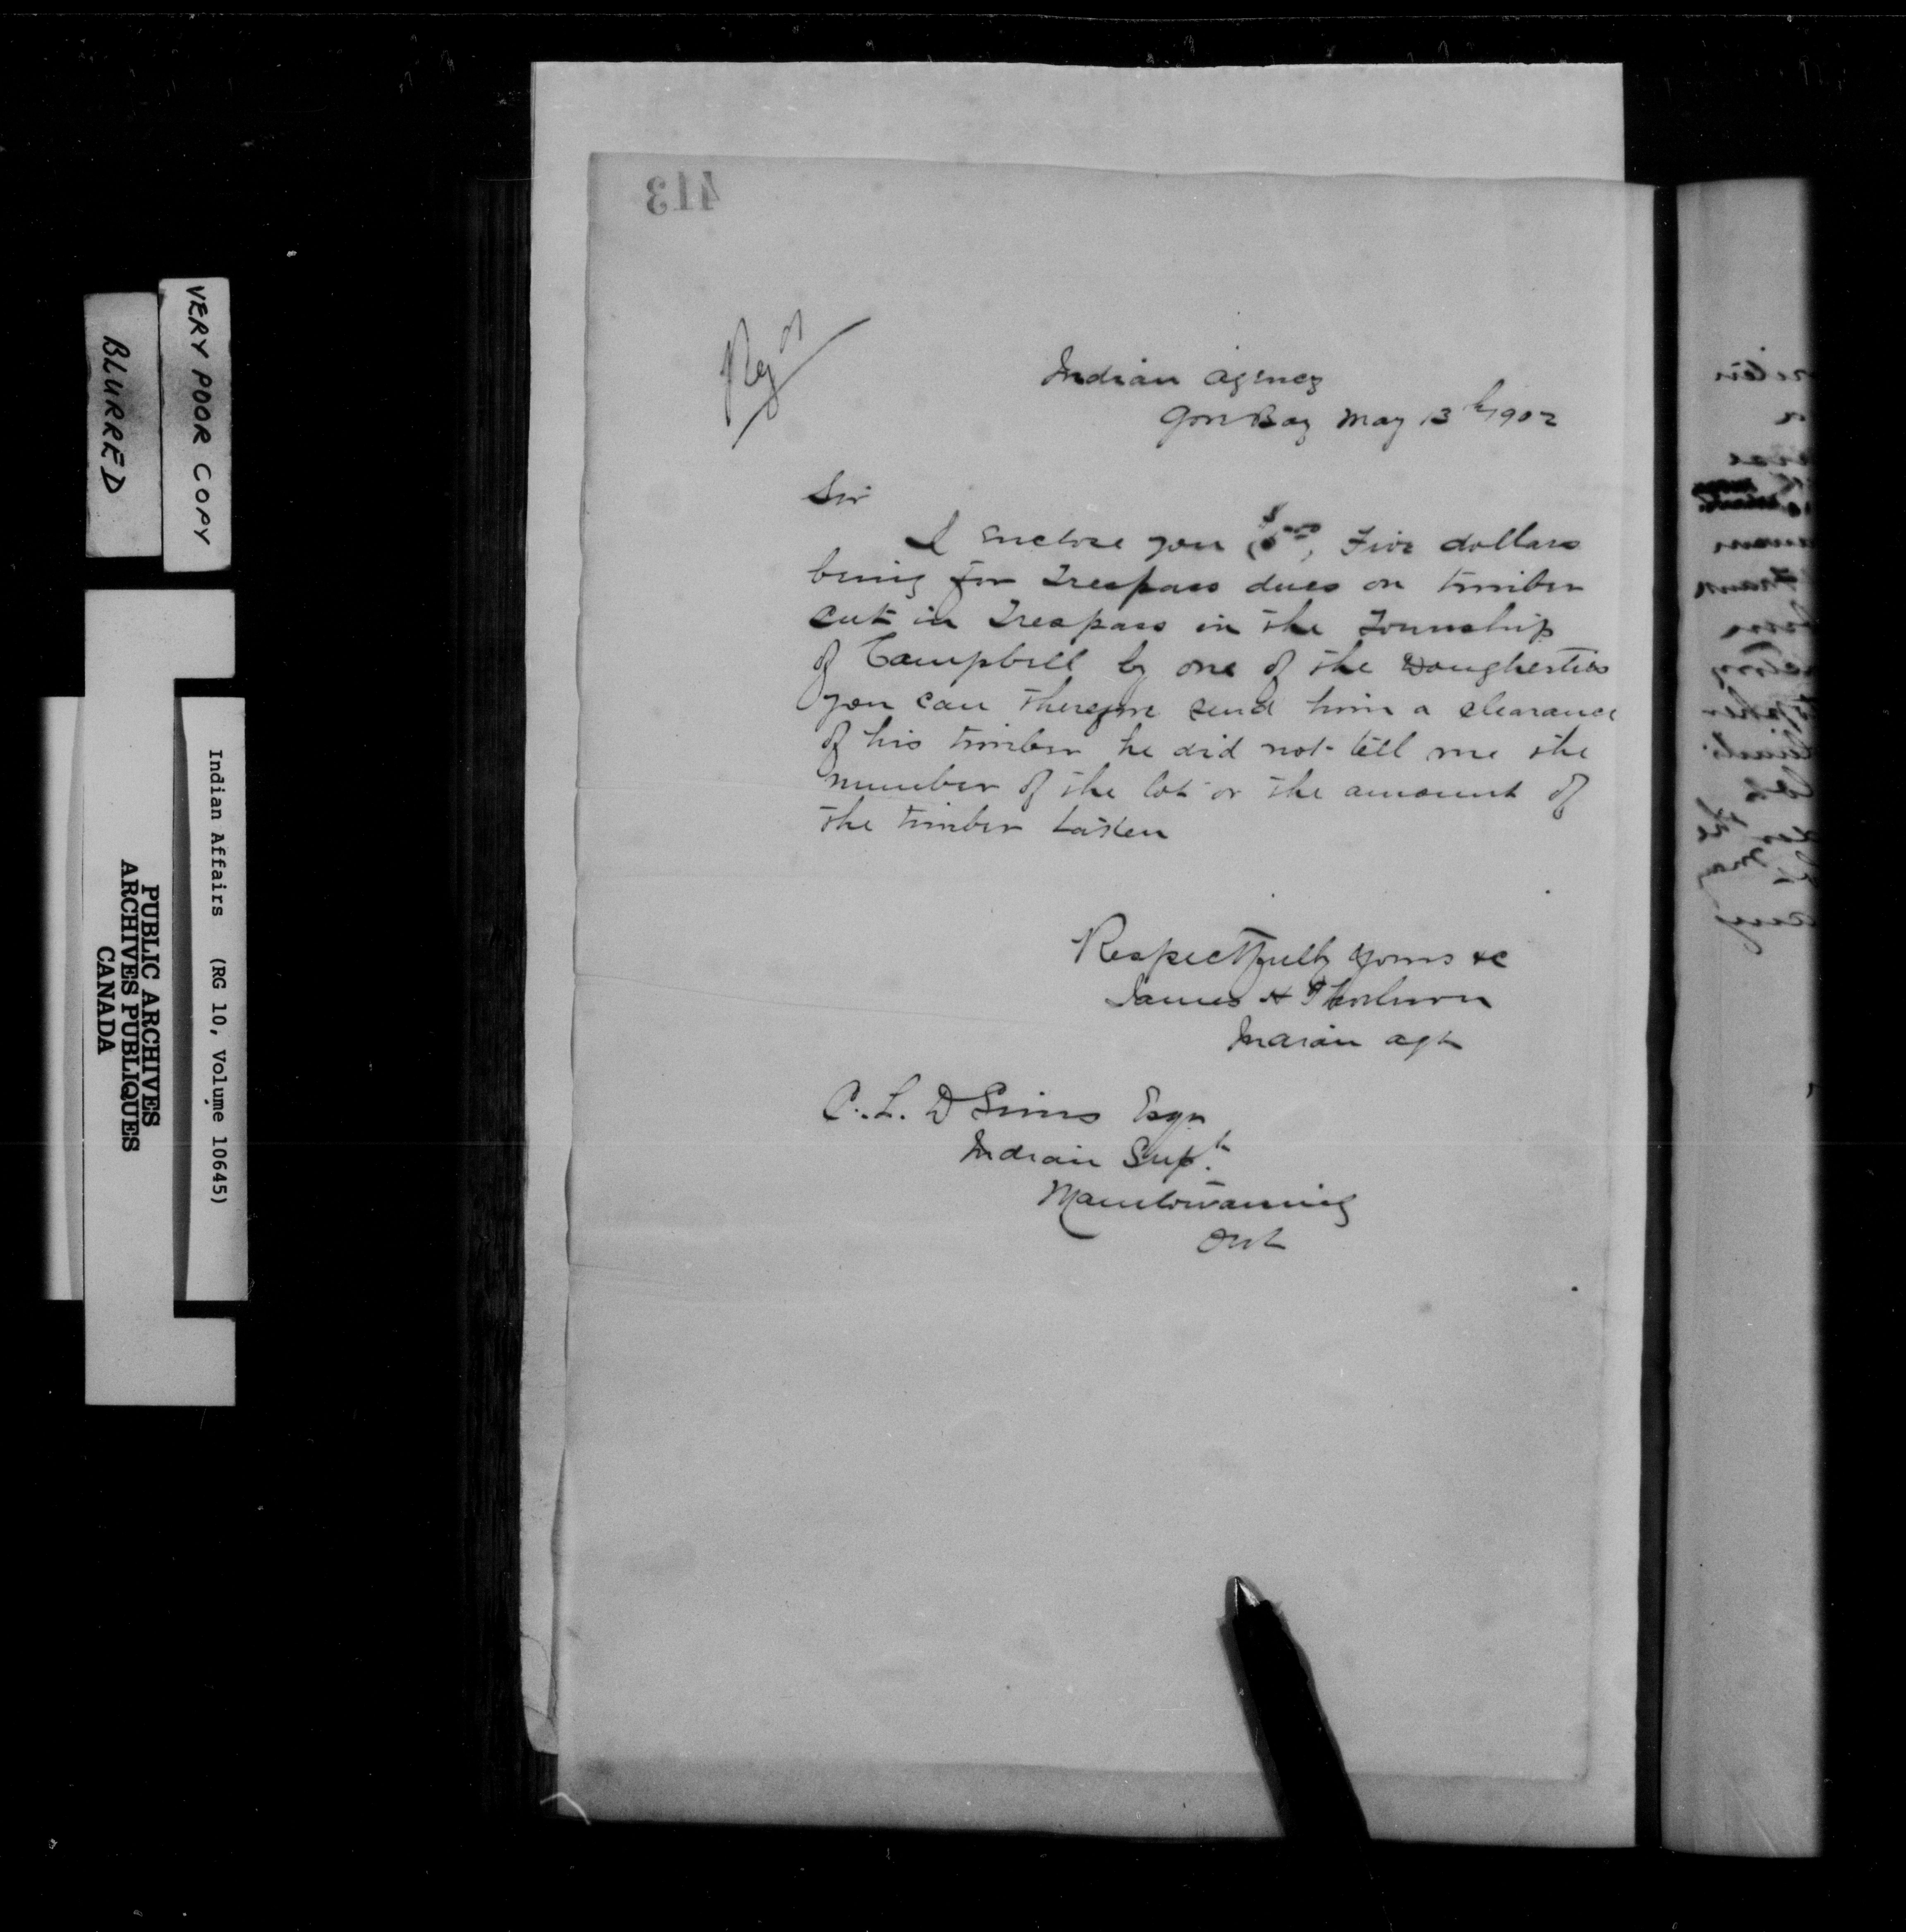 413
Reg'd
Indian Agency
Gore Bay May 13th 1902
Sir
I enclose you ($5.00) Five dollars
being for Trespass dues on timber
cut in Trespass in the Township
of Campbell by one of the Dougherties
you can therefore send him a clearance
of his timber he did not tell me the
number of the lot or the amount of
the timber taken
Respectfully yours &c
James H Thorburn
Indian agt
C. L. D Sims Esqr
Indian Supt.
Manitowaning
Ont
VERY POOR COPY
BLURRED
Indian Affairs (RG 10, Volume 10645)
PUBLIC ARCHIVES
ARCHIVES PUBLIQUES
CANADA